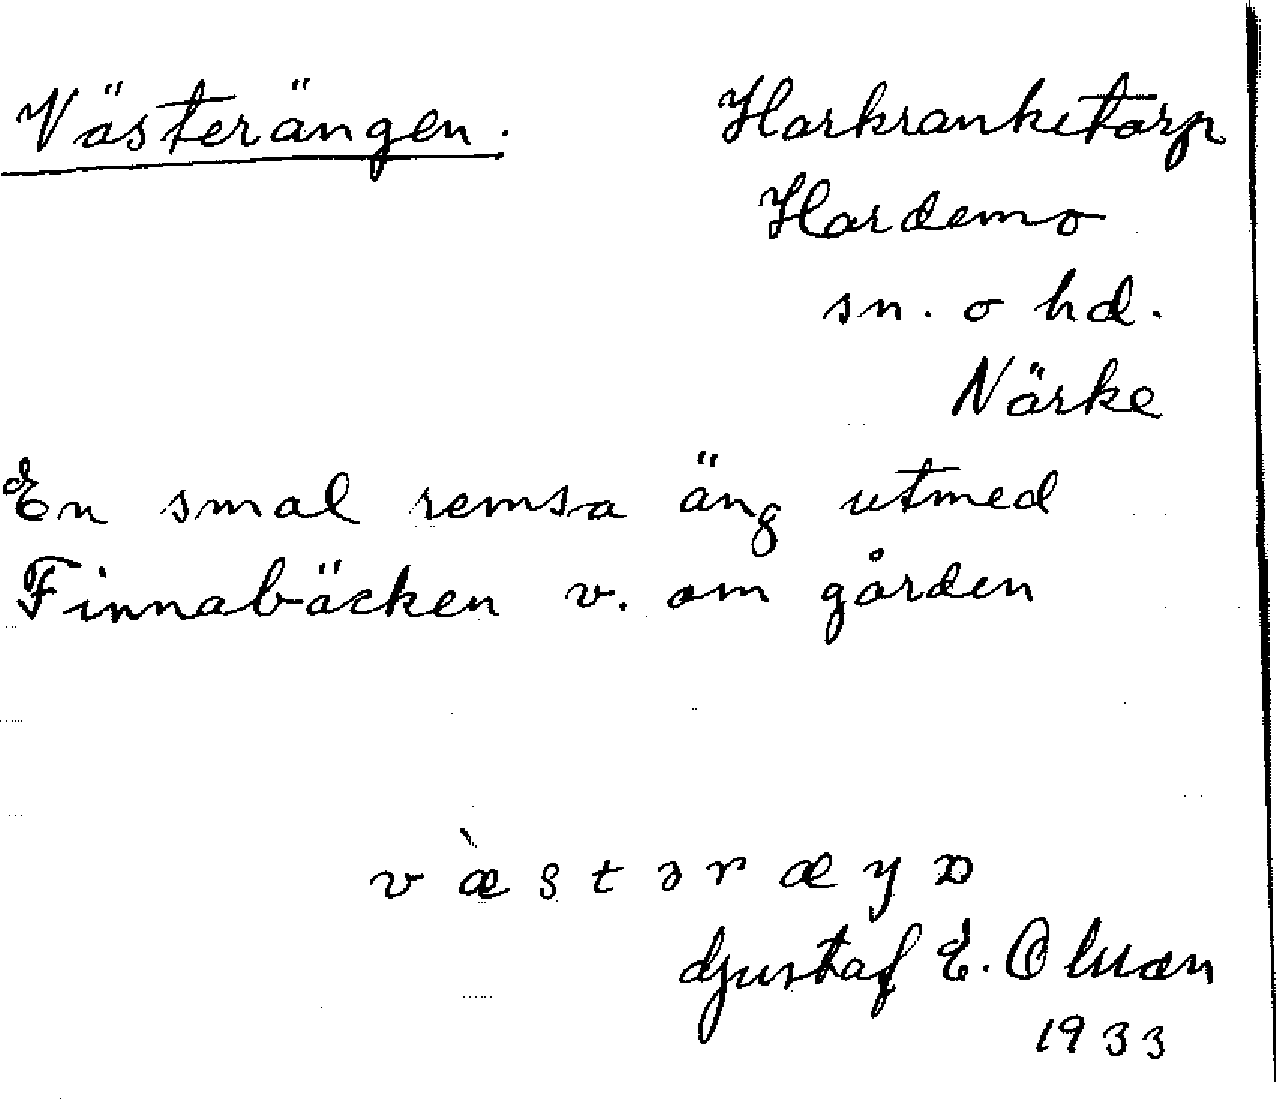 Västerängen.
Harkranketorp
Hardemo
sn. o hd.
Närke
En smal remsa äng utmed
Finnabäcken v. om gården
Gustaf E. Olsson
1933